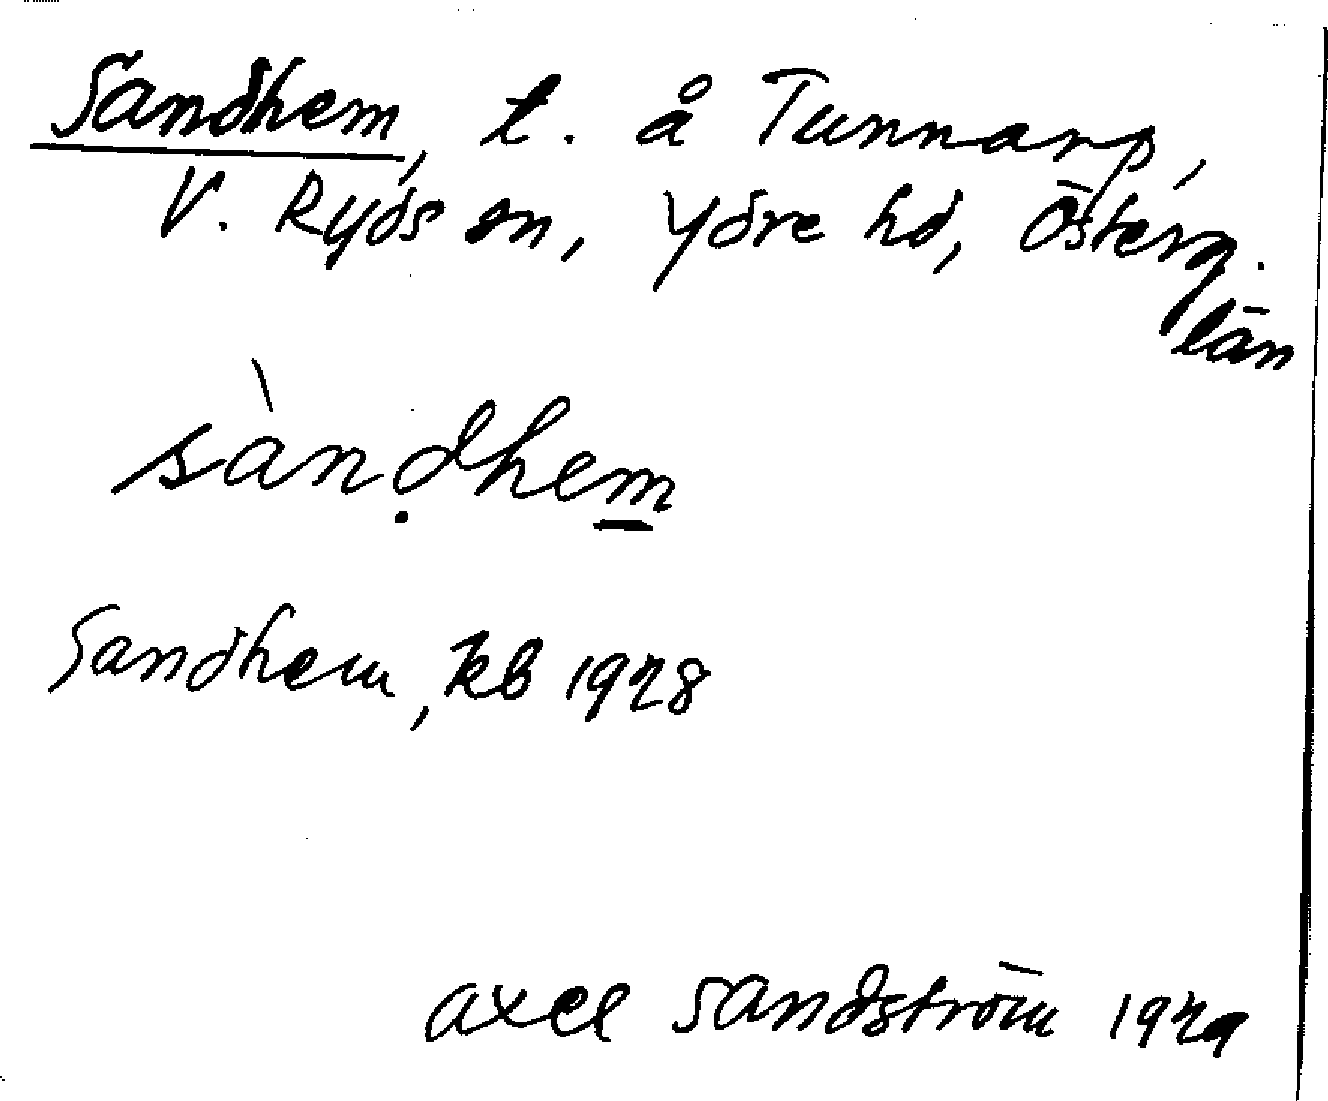 Sandhem, t. å Tunnarp,
V. Ryds sn, Ydre hd, Österg.
län
sàndhem
Sandhem, kb 1928
Axel Sandström 1929